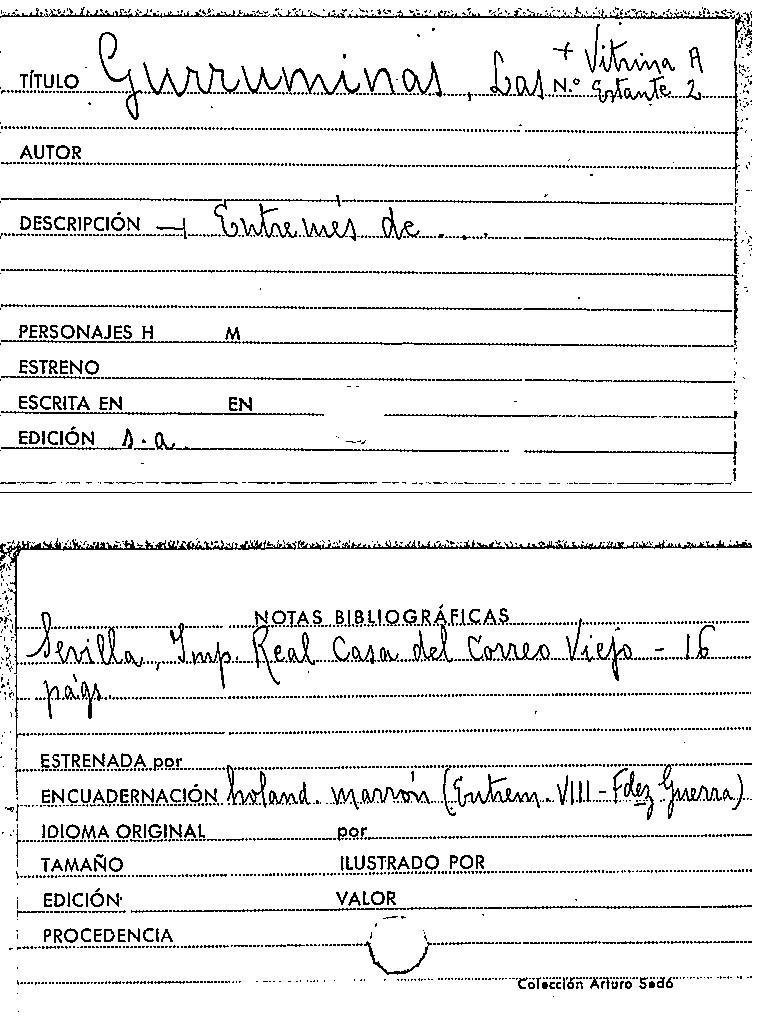 + Vitrina A
TÍTULO Gurruminas, Las N.º Estante 2
AUTOR
DESCRIPCIÓN —| Entremés de . . .
PERSONAJES H M
ESTRENO
ESCRITA EN EN
EDICIÓN s.a.
NOTAS BIBLIOGRÁFICAS
Sevilla, Imp. Real Casa del Correo Viejo - 16
págs.
ESTRENADA por
ENCUADERNACIÓN holand. marrón (Entrem. VIII - Fdez Guerra)
IDIOMA ORIGINAL por
TAMAÑO ILUSTRADO POR
EDICIÓN VALOR
PROCEDENCIA
Colección Arturo Sedó